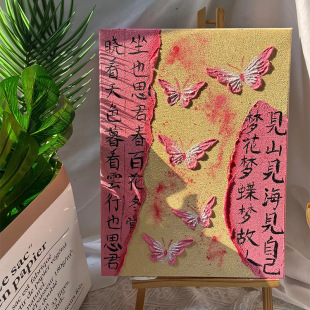 晓看天色暮看雲行也思君
坐也思君春百花冬
见山见海见自己
梦花梦蝶梦故人
sac"
papier"